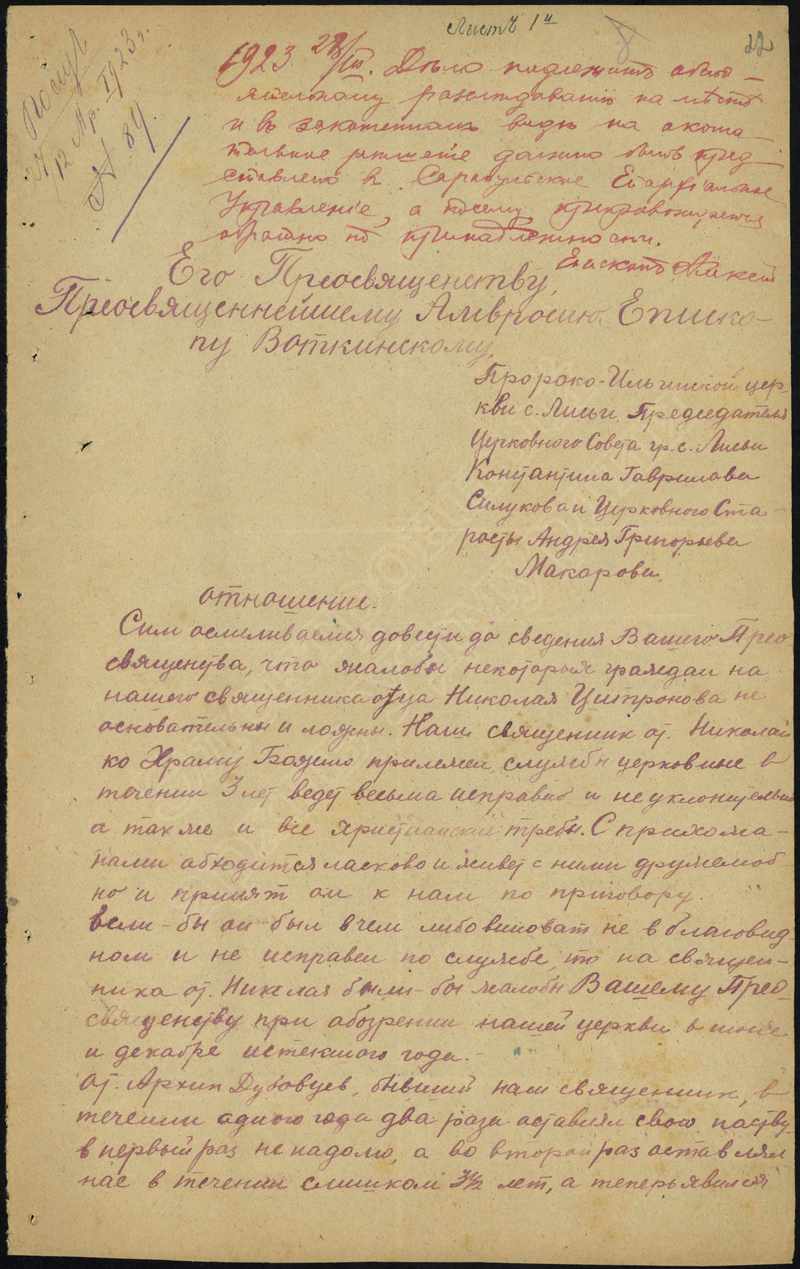 Листъ 1й
22
Получ
12 Апр. 1923 г.
№ 89.
1923 28/III. Дѣло подлежитъ обсто-
ятельному разслѣдованію на мѣстѣ
и въ законченномъ видѣ на оконча-
тельное рѣшеніе должно быть пред-
ставлено в Сарапульское Епархіальное
Управленіе, а посему препровождается
обратно по принадлежности.
Епископъ Алексій
Его Преосвященству,
Преосвященнейшему Амвросию Еписко-
пу Воткинскому,
Пророко-Ильинской цер-
кви с. Лисьи Председателя
Церковного Совета гр. с. Лисьи
Константина Гаврилова
Силукова и Церковного Ста-
росты Андрея Григорьева
Макарова.
отношение.
Сим осмеливаемся довести до сведения Вашего Прео
священства, что жалобы некоторых граждан на
нашего священника отца Николая Цитронова не
основательны и ложны. Наш священник от. Николай
ко Храму Божею прилежен, службы церковные в
течении 3 лет ведет весьма исправно и неуклонительно
а также и все христианские требы. С прихожа-
нами обходится ласково и живет с ними дружелюб-
но и принят он к нам по приговору.
Если-бы он был в чем либо виноват не в благовид-
ном и не исправен по службе, то на священ-
ника от. Николая были-бы жалобы Вашему Прео-
священству при обозрении нашей церкви в июне
и декабре истекшого года.
От. Архип Дубовцев, бывший наш священник, в
течении одного года два раза оставлял свою паству,
в первый раз не надолго, а во второй раз оставлял
нас в течении слишком 3½ лет, а теперь явился